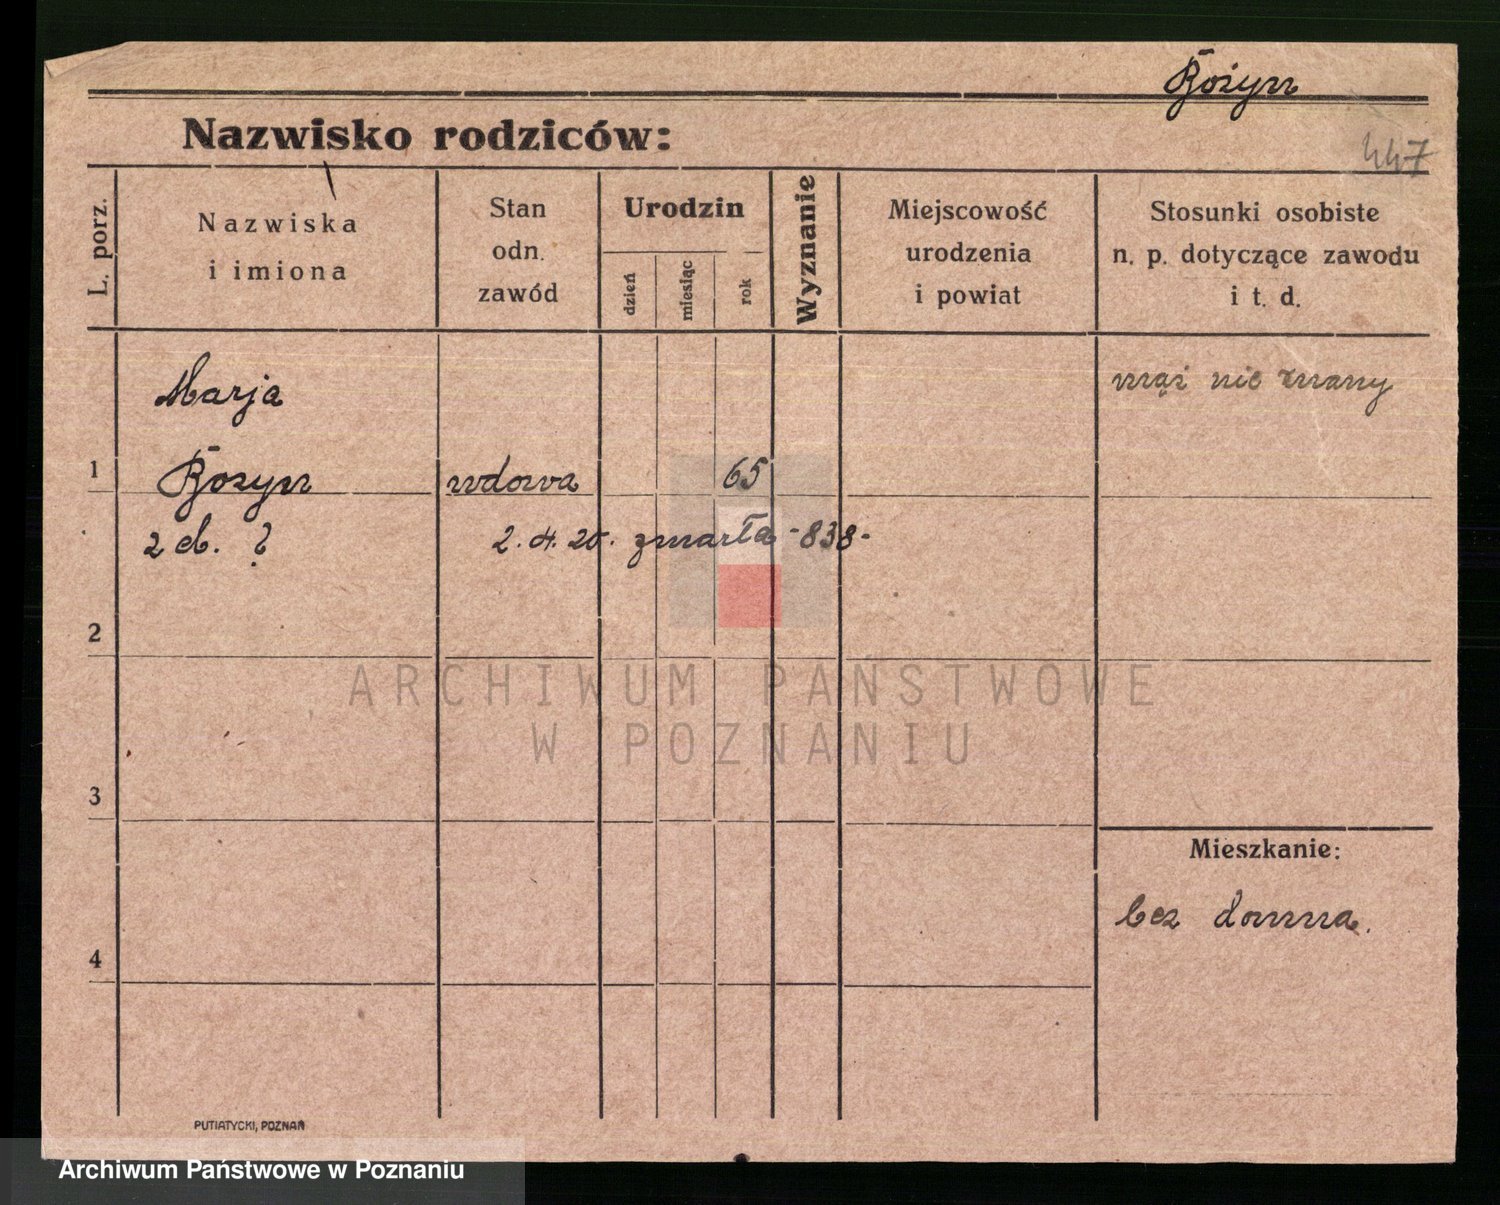 Bożym
447
Nazwisko rodziców:
L. porz.
Nazwiska
i imiona
Stan
odn.
zawód
Urodzin
dzień
miesiąc
rok
Wyznanie
Miejscowość
urodzenia
i powiat
Stosunki osobiste
n. p. dotyczące zawodu
i t. d.
Marja
mąż nie znany
1
Bożym wdowa 65
2. 4. 20. zmarła -838-
2
3
Mieszkanie:
bez domu
4
ARCHIWUM PAŃSTWOWE
W POZNANIU
PUTIATYCKI, POZNAŃ
Archiwum Państwowe w Poznaniu